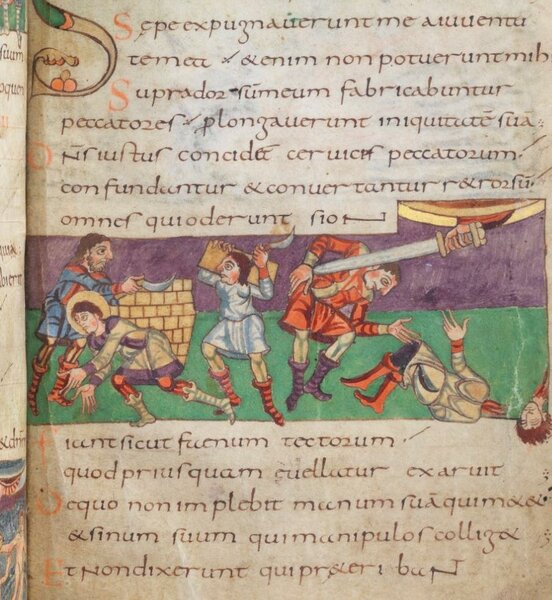 Sepe expugnaverunt me a iuventu
te mea & enim non potuerunt mihi
Supra dorsũ meum fabricabuntur
peccatores plongaverunt iniquitatẽ suã
Dñs iustus concidet cervices peccatorum
confundantur & convertantur r&rorsũ
omnes qui oderunt sion
Fiant sicut faenum tectorum
quod prius quam evellatur exaruit
De quo non implebit manum suã qui m&&
& sinum suum qui manipulos collig&
Et non dixerunt qui pr&eribant